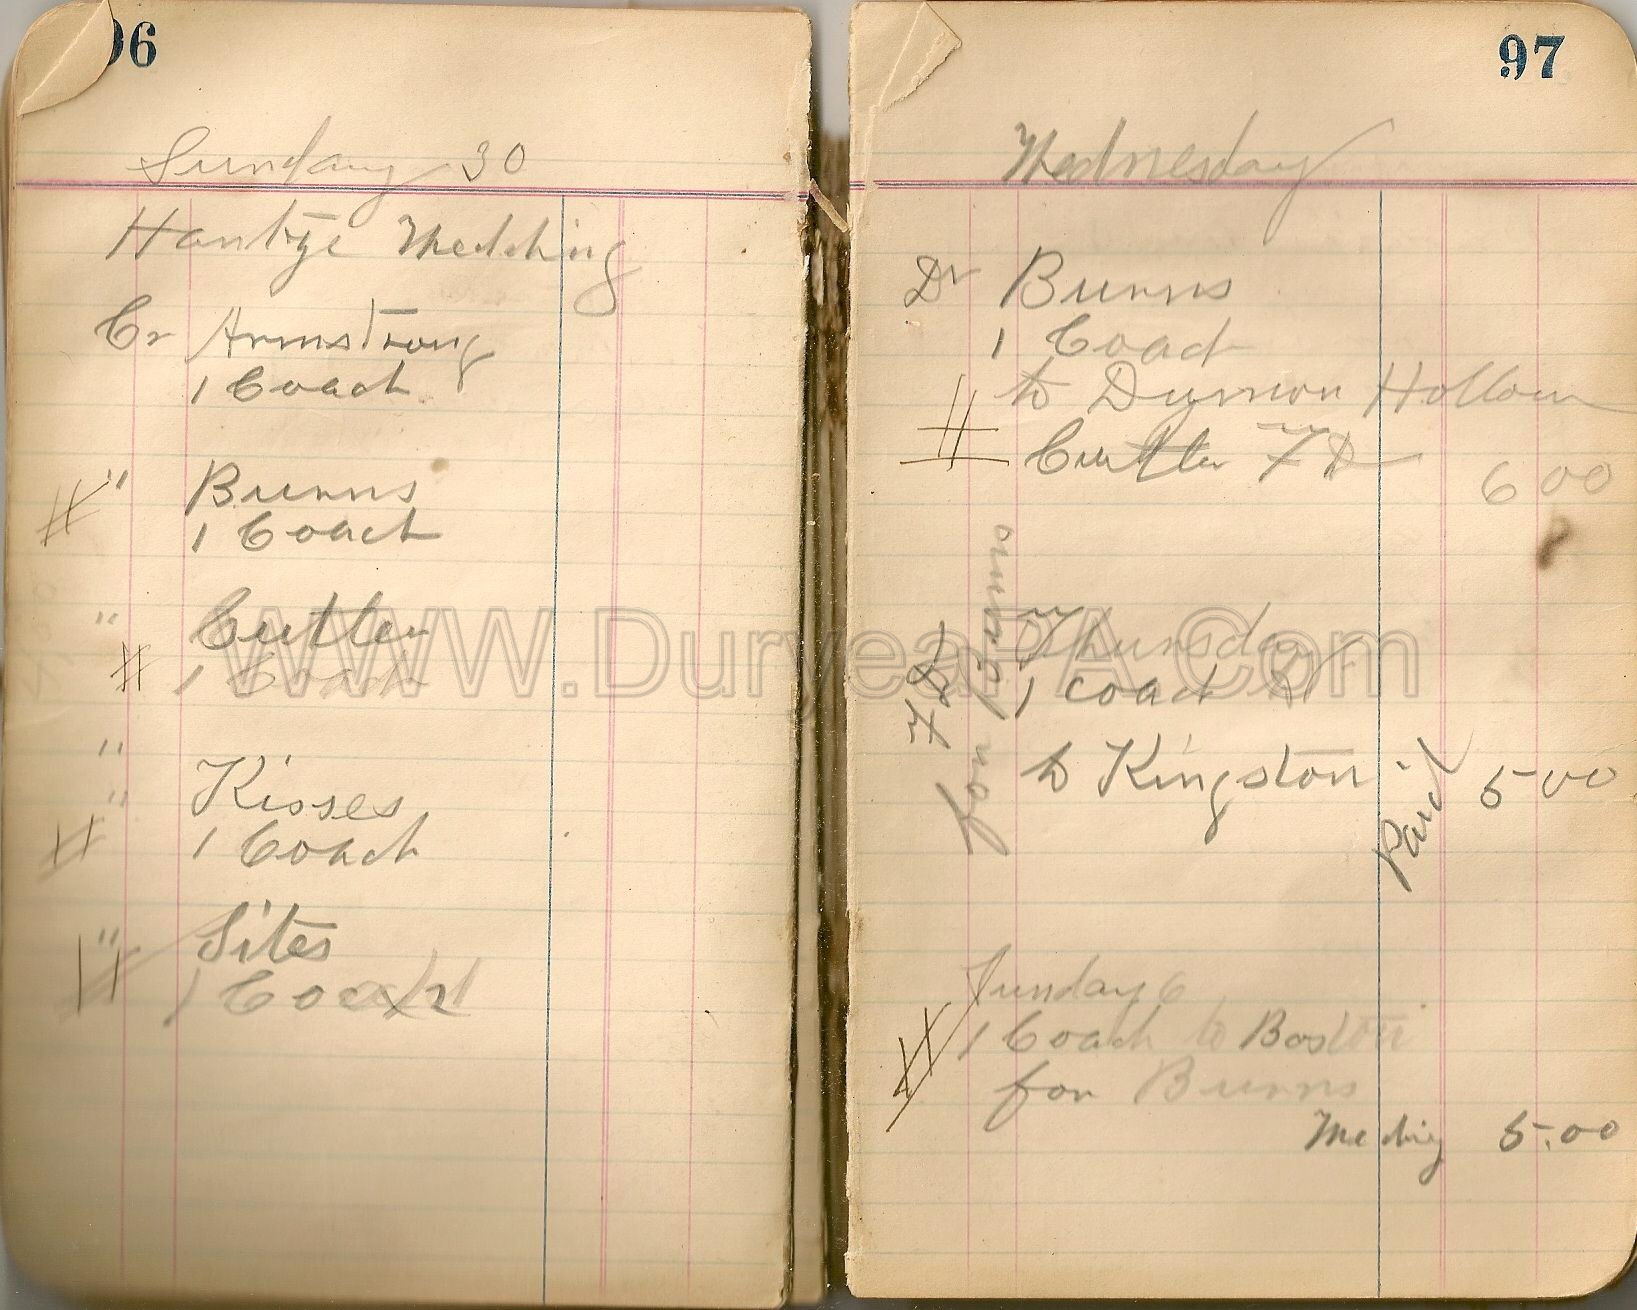 96
Sunday 30
Hantze Wedding
Cr Armstrong
1 Coach
" Burns
# 1 Coach
" Cutler
# 1 Coach
"
" Kisses
# 1 Coach
" Sites
# 1 Coach
97
Wednesday
Dr Burns
1 Coach
to Dymon Hollow
# Cutler FD
6 00
Thursday
1 coach
to Kingston
Paid
5 00
FD
for
Sunday 6
# 1 Coach to Boston
for Burns
Wedding 5.00
WWW.DuryeaPA.Com